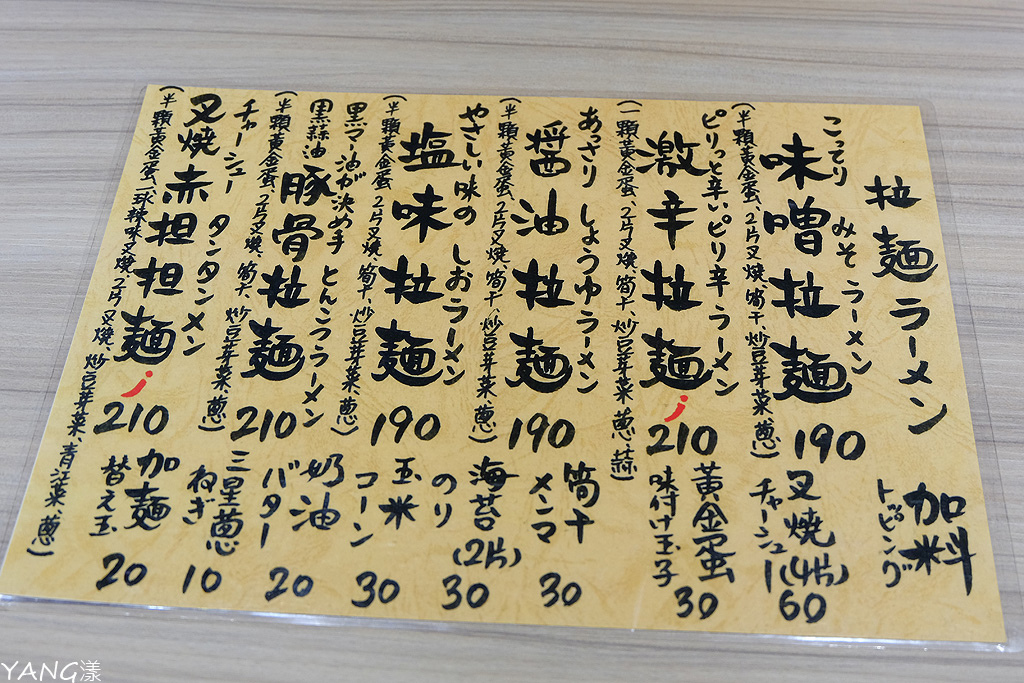 拉麵ラーメン
こってり みそラーメン
味噌拉麵
190
(半顆黃金蛋、2片叉燒、筍干、炒豆芽菜、蔥)
ピリっと辛いピリ辛ラーメン
激辛拉麵
210
(一顆黃金蛋、2片叉燒、筍干、炒豆芽菜、蔥、蒜)
あさり しょうゆラーメン
醬油拉麵
190
(半顆黃金蛋、2片叉燒、筍干、炒豆芽菜、蔥)
やさしい味の しおラーメン
塩味拉麵
190
(半顆黃金蛋、2片叉燒、筍干、炒豆芽菜、蔥)
黒マー油が決め手 とんこつラーメン
黑蒜油
豚骨拉麵
210
(半顆黃金蛋、2片叉燒、筍干、炒豆芽菜、蔥)
チャーシュー タンタンメン
叉燒赤担担麵
210
(半顆黃金蛋、一球辣味叉燒、2片叉燒、炒豆芽菜、青江菜、蔥)
加料
トッピング
叉燒
チャーシュー(4片)
60
黃金蛋
味付け玉子
30
筍干
メンマ
30
海苔(2片)
のり
30
玉米
コーン
30
奶油
バター
20
三星蔥
ねぎ
10
加麵
替え玉
20
YANG漾